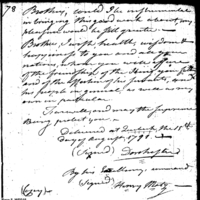 78
Brothers, could I be instrumental
in bringing this good work about, my
pleasure would be full greater.
Brother, I wish health, wisdom &
happiness to you and all the
nations, whom you were
of the of the King your
and of the affection of his people to you
his people in general, as well as my
own in particular.
Farewell, and may the supreme
Being protect you.
Delivered at Quebec the 15th
day of August 1791.
(Signed) Dorchester
By his Excellency's command
(Signed) Henry Motz
(Copy)